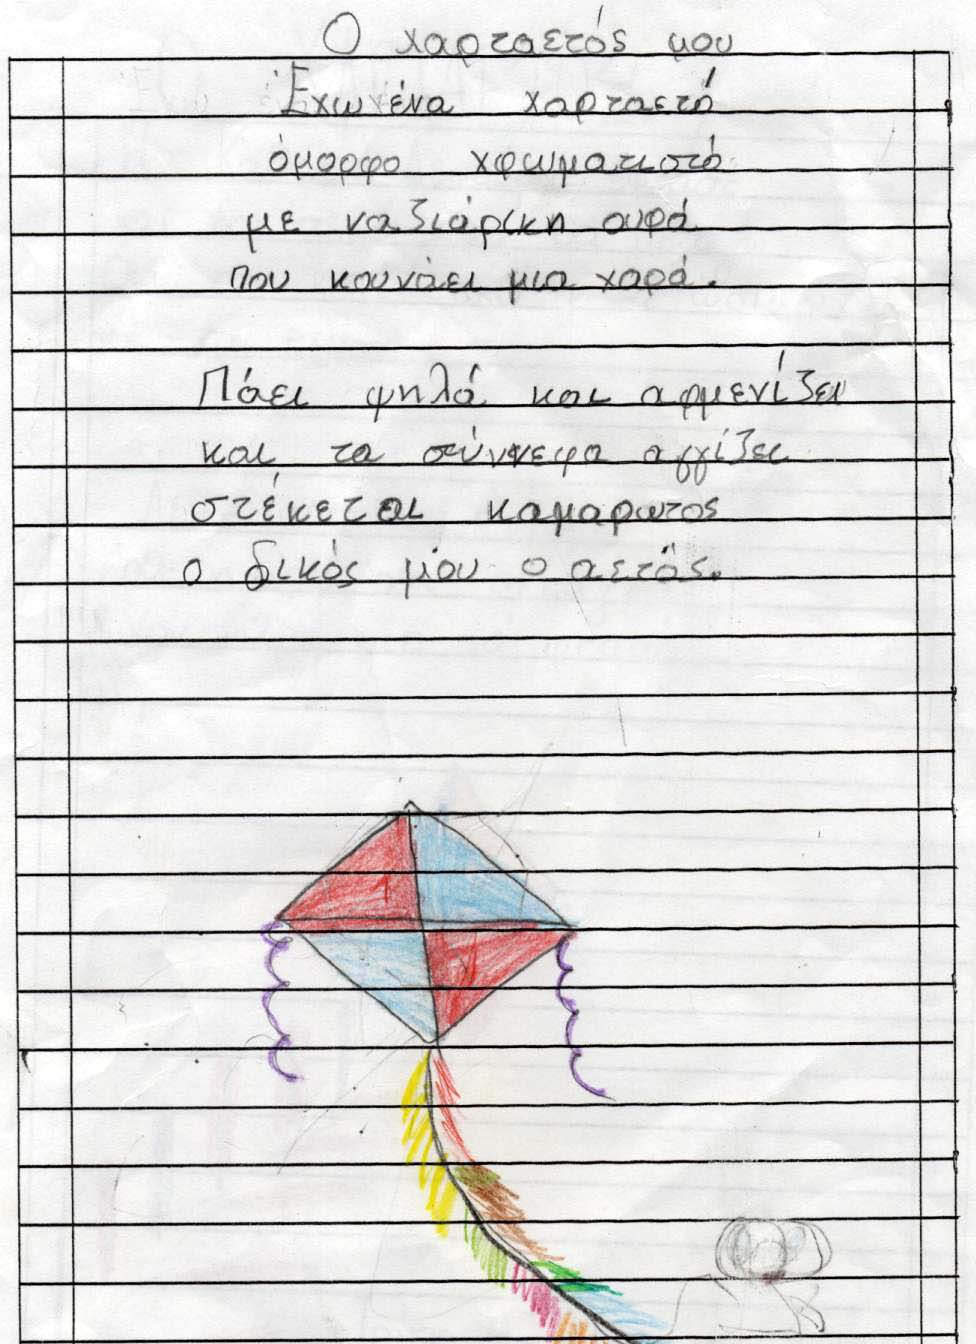 Ο χαρταετός μου
Έχω ένα χαρταετό
όμορφο χρωματιστό
με ναζιάρικη ουρά
που κουνάει μια χαρά.
Πάει ψηλά και αρμενίζει
και τα σύννεφα αγγίζει
στέκεται καμαρωτος
ο δικός μου ο αετός.